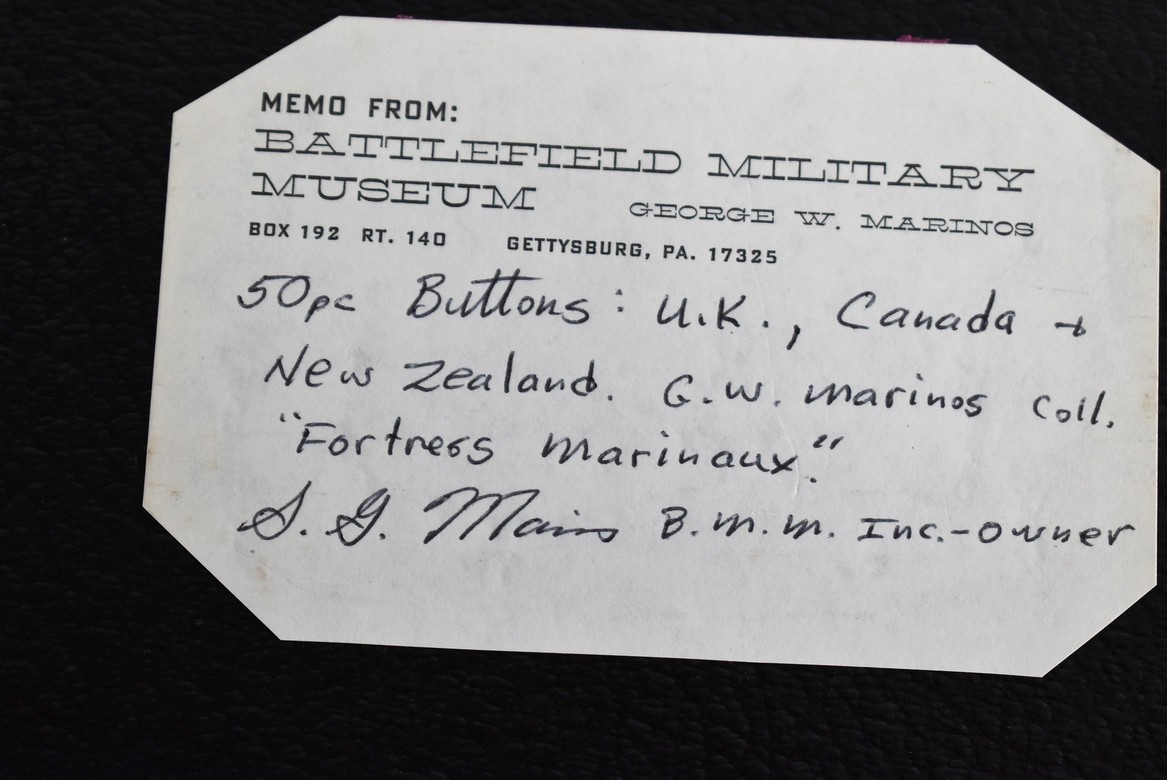 MEMO FROM:
BATTLEFIELD MILITARY
MUSEUM GEORGE W. MARINOS
BOX 192 RT. 140 GETTYSBURG, PA. 17325
50pc Buttons: U.K., Canada +
New Zealand. G.W. Marinos Coll.
"Fortress Marinaux."
S. G. Mains B.M.M. Inc.-Owner